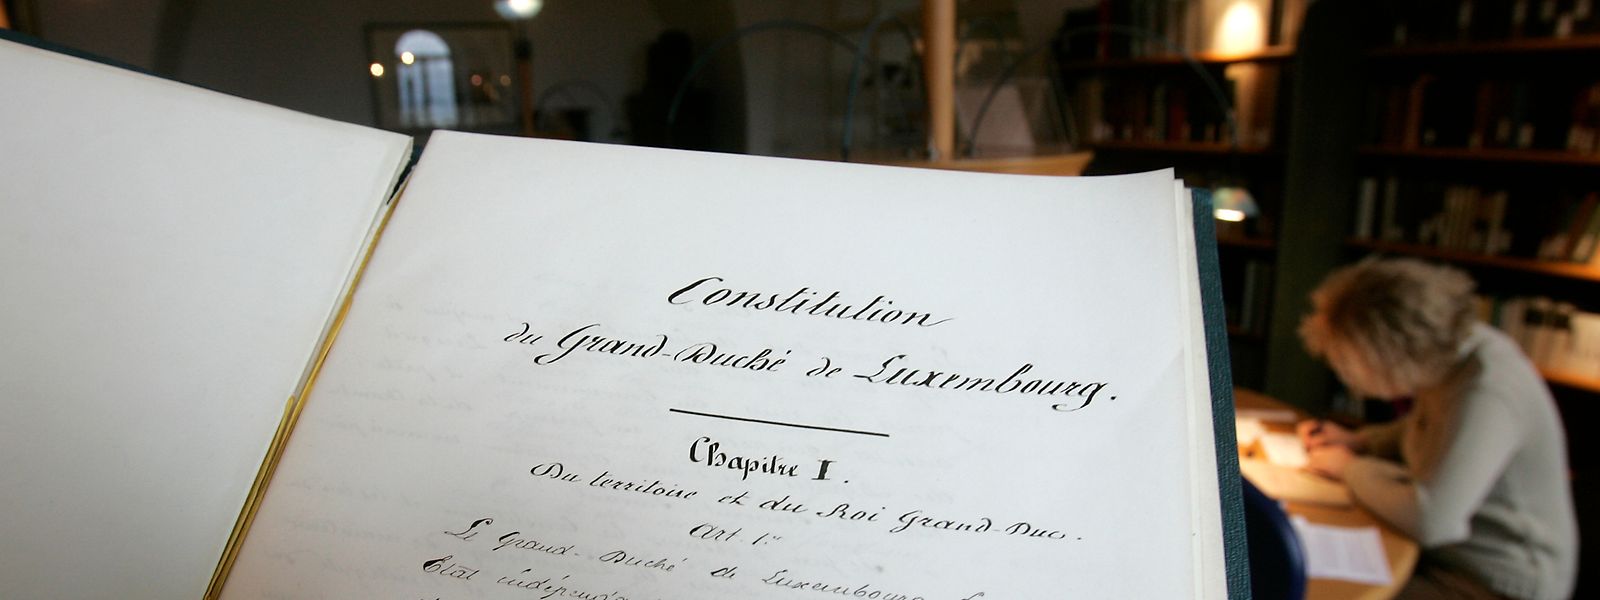 Constitution
du Grand-Duché de Luxembourg.
Chapitre I.
Du territoire et du Roi Grand-Duc.
Art. 1.er
Le Grand-Duché de Luxembourg
État